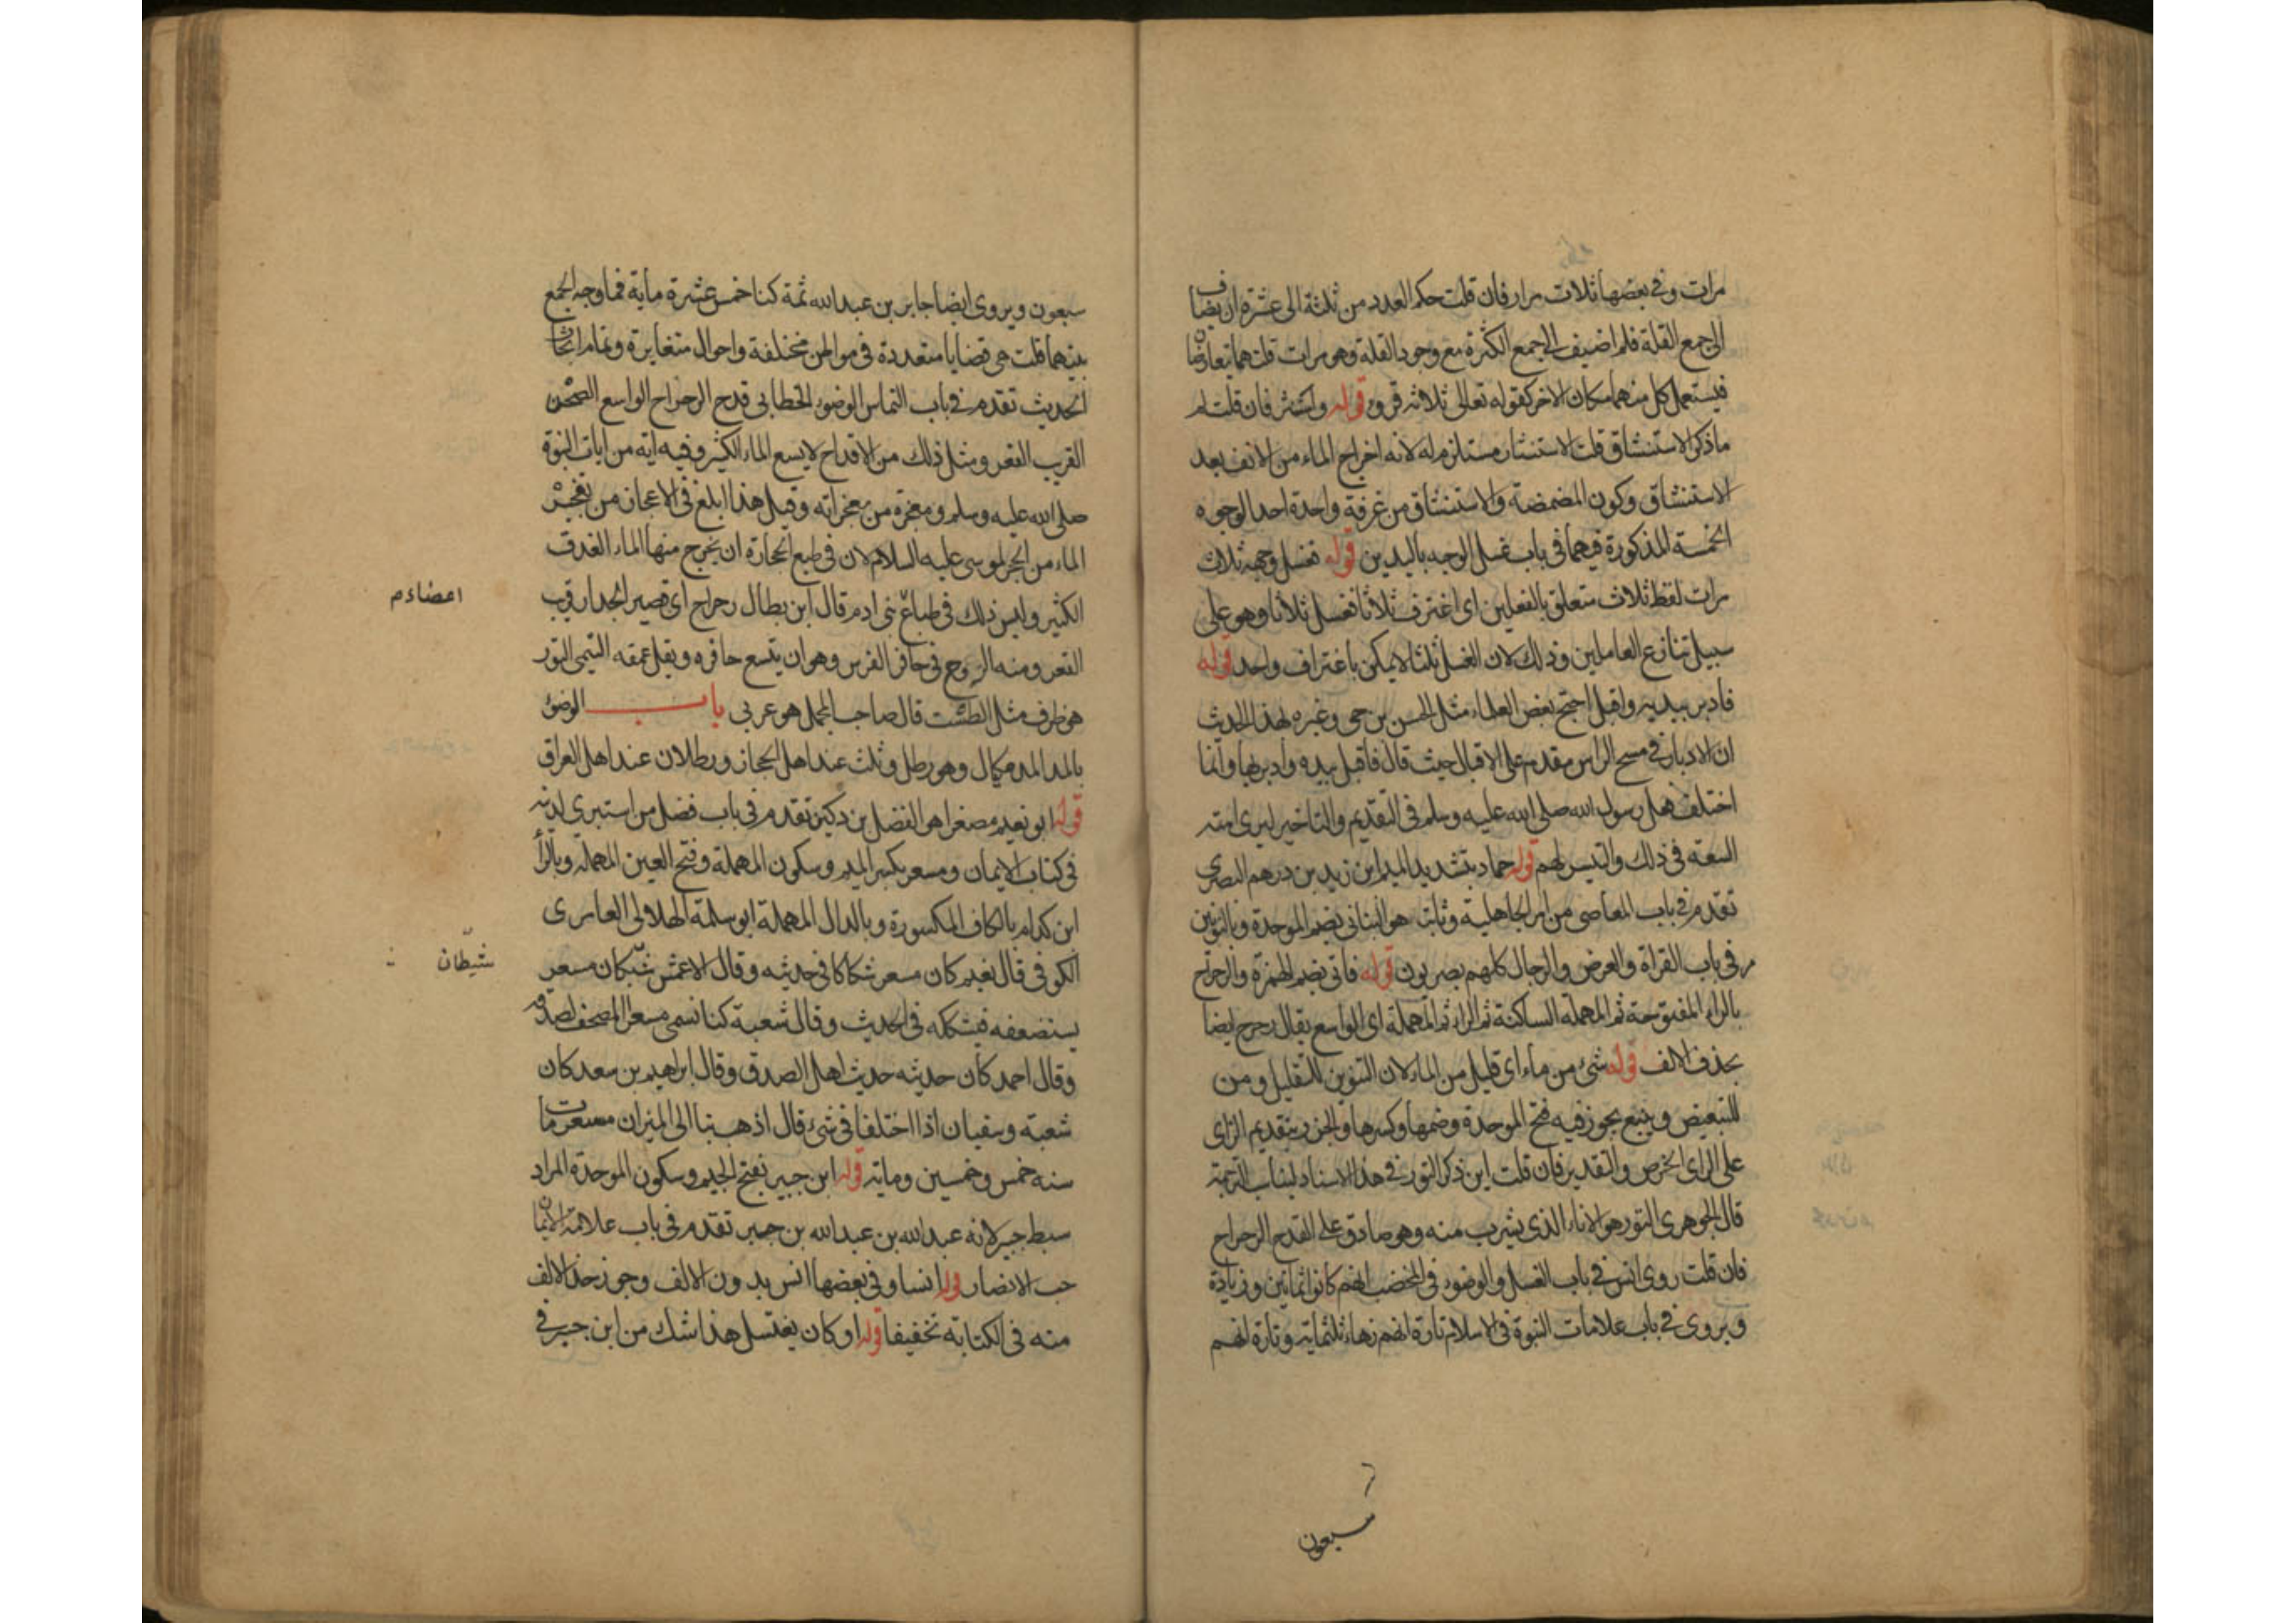 مرات وفي بعضها ثلاث مرار فان قلت حكم العدد من ثلثة الى عشرة ان يضاف
الى جمع القلة فلم اضيف الى جمع الكثرة مع وجود القلة وهو مرات قلت هما يتعارضان
فيستعمل كل منهما مكان الاخر كقوله تعالى ثلاثة قروء قوله واستنثر فان قلت لم
ما ذكر الاستنشاق قلت الاستنثار مستلزم له لانه اخراج الماء من الانف بعد
الاستنشاق وكون المضمضة والاستنشاق من غرفة واحدة احد الوجوه
الخمسة المذكورة فيهما في باب غسل الوجه باليدين قوله فغسل وجهه ثلاث
مرات لفظ ثلاث متعلق بالفعلين اى اغترف ثلاثا فغسل ثلاثا وهو على
سبيل تنازع العاملين وذلك لان الغسل ثلثا لا يمكن باغتراف واحد قوله
فأدبر بيديه واقبل احتج بعض العلماء مثل الحسن بن حى وغيره لهذا الحديث
ان الادبار في مسح الراس مقدم على الاقبال حيث قال فاقبل بيده وأدبر بها وانما
اختلف فعل رسول الله صلى الله عليه وسلم في التقديم والتاخير ليرى امته
السعة في ذلك والتيسير لهم قوله حماد بتشديد الميم ابن زيد بن درهم البصرى
تقدم في باب المعاصى من امر الجاهلية وثابت هو البنانى بضم الموحدة وبالنونين
مر في باب القراة والعرض والرجال كلهم بصريون قوله فاتى بضم الهمزة والرحراح
بالراء المفتوحة ثم المهملة الساكنة ثم الراء ثم المهملة اى الواسع يقال رحرح ايضا
بحذف الالف قوله شئ من ماء اى قليل من الماء لان التنوين للتقليل ومن
للتبعيض وينبع يجوز فيه فتح الموحدة وضمها وكسرها والحزر بتقديم الزاى
على الراى الخرص والتقدير فان قلت اين ذكر التور في هذا الاسناد ليناسب الترجمة
قال الجوهرى التور هو الاناء الذى يشرب منه وهو صادق على القدح الرحراح
فان قلت روى انس في باب الغسل والوضوء في المخضب انهم كانوا ثمانين وزيادة
ويروى في باب علامات النبوة في الاسلام تارة انهم زهاء ثلثماية وتارة انهم
سبعون
سبعون ويروى ايضا جابر بن عبد الله ثمة كنا خمس عشرة ماية فما وجه الجمع
بينهما قلت هى قضايا متعددة في مواطن مختلفة واحوال متغايرة وتمام ابحاث
الحديث تقدم في باب التماس الوضوء الخطابى قدح الرحراح الواسع الصحن
القريب القعر ومثل ذلك من الاقداح لا يسع الماء الكثير وفيه اية من ايات النبوة
صلى الله عليه وسلم ومعجزة من معجزاته وقيل هذا ابلغ في الاعجاز من تفجير
الماء من الحجر لموسى عليه السلام لان في طبع الحجارة ان يخرج منها الماء الغدق
الكثير وليس ذلك في طباع بنى ادم قال ابن بطال رحراح اى قصير الجدار قريب
اعضاء م
القعر ومنه الروح في حافر الفرس وهو ان يتسع حافره ويقل عمقه التيمى التور
هو ظرف مثل الطشت قال صاحب المجمل هو عربى باب الوضوء
بالمد المد مكيال وهو رطل وثلث عند اهل الحجاز ورطلان عند اهل العراق
قوله ابو نعيم مصغرا هو الفضل بن دكين تقدم في باب فضل من استبرى لدينه
في كتاب الايمان ومسعر بكسر الميم وسكون المهملة وفتح العين المهملة وبالرأ
ابن كدام بالكاف المكسورة وبالدال المهملة ابو سلمة الهلالى العامرى
الكوفى قال نعيم كان مسعر شكاكا في حديثه وقال الاعمش شبكان مسعر
شيطان
يستضعفه فيشككه في الحديث وقال شعبة كنا نسمى مسعر المصحف لصدقه
وقال احمد كان حديثه حديث اهل الصدق وقال ابراهيم بن سعد كان
شعبة وسفيان اذا اختلفا في شئ قال اذهب بنا الى الميزان مسعر مات
سنه خمس وخمسين وماية قوله ابن جبير بفتح الجيم وسكون الموحدة المراد
سبط جبر لانه عبد الله بن عبد الله بن جبر تقدم في باب علامة الايمان
حب الانصار قوله انسا وفي بعضها انس بدون الالف وجوز حذف الالف
منه في الكتابة تخفيفا قوله او كان يغتسل هذا شك من ابن جبر في